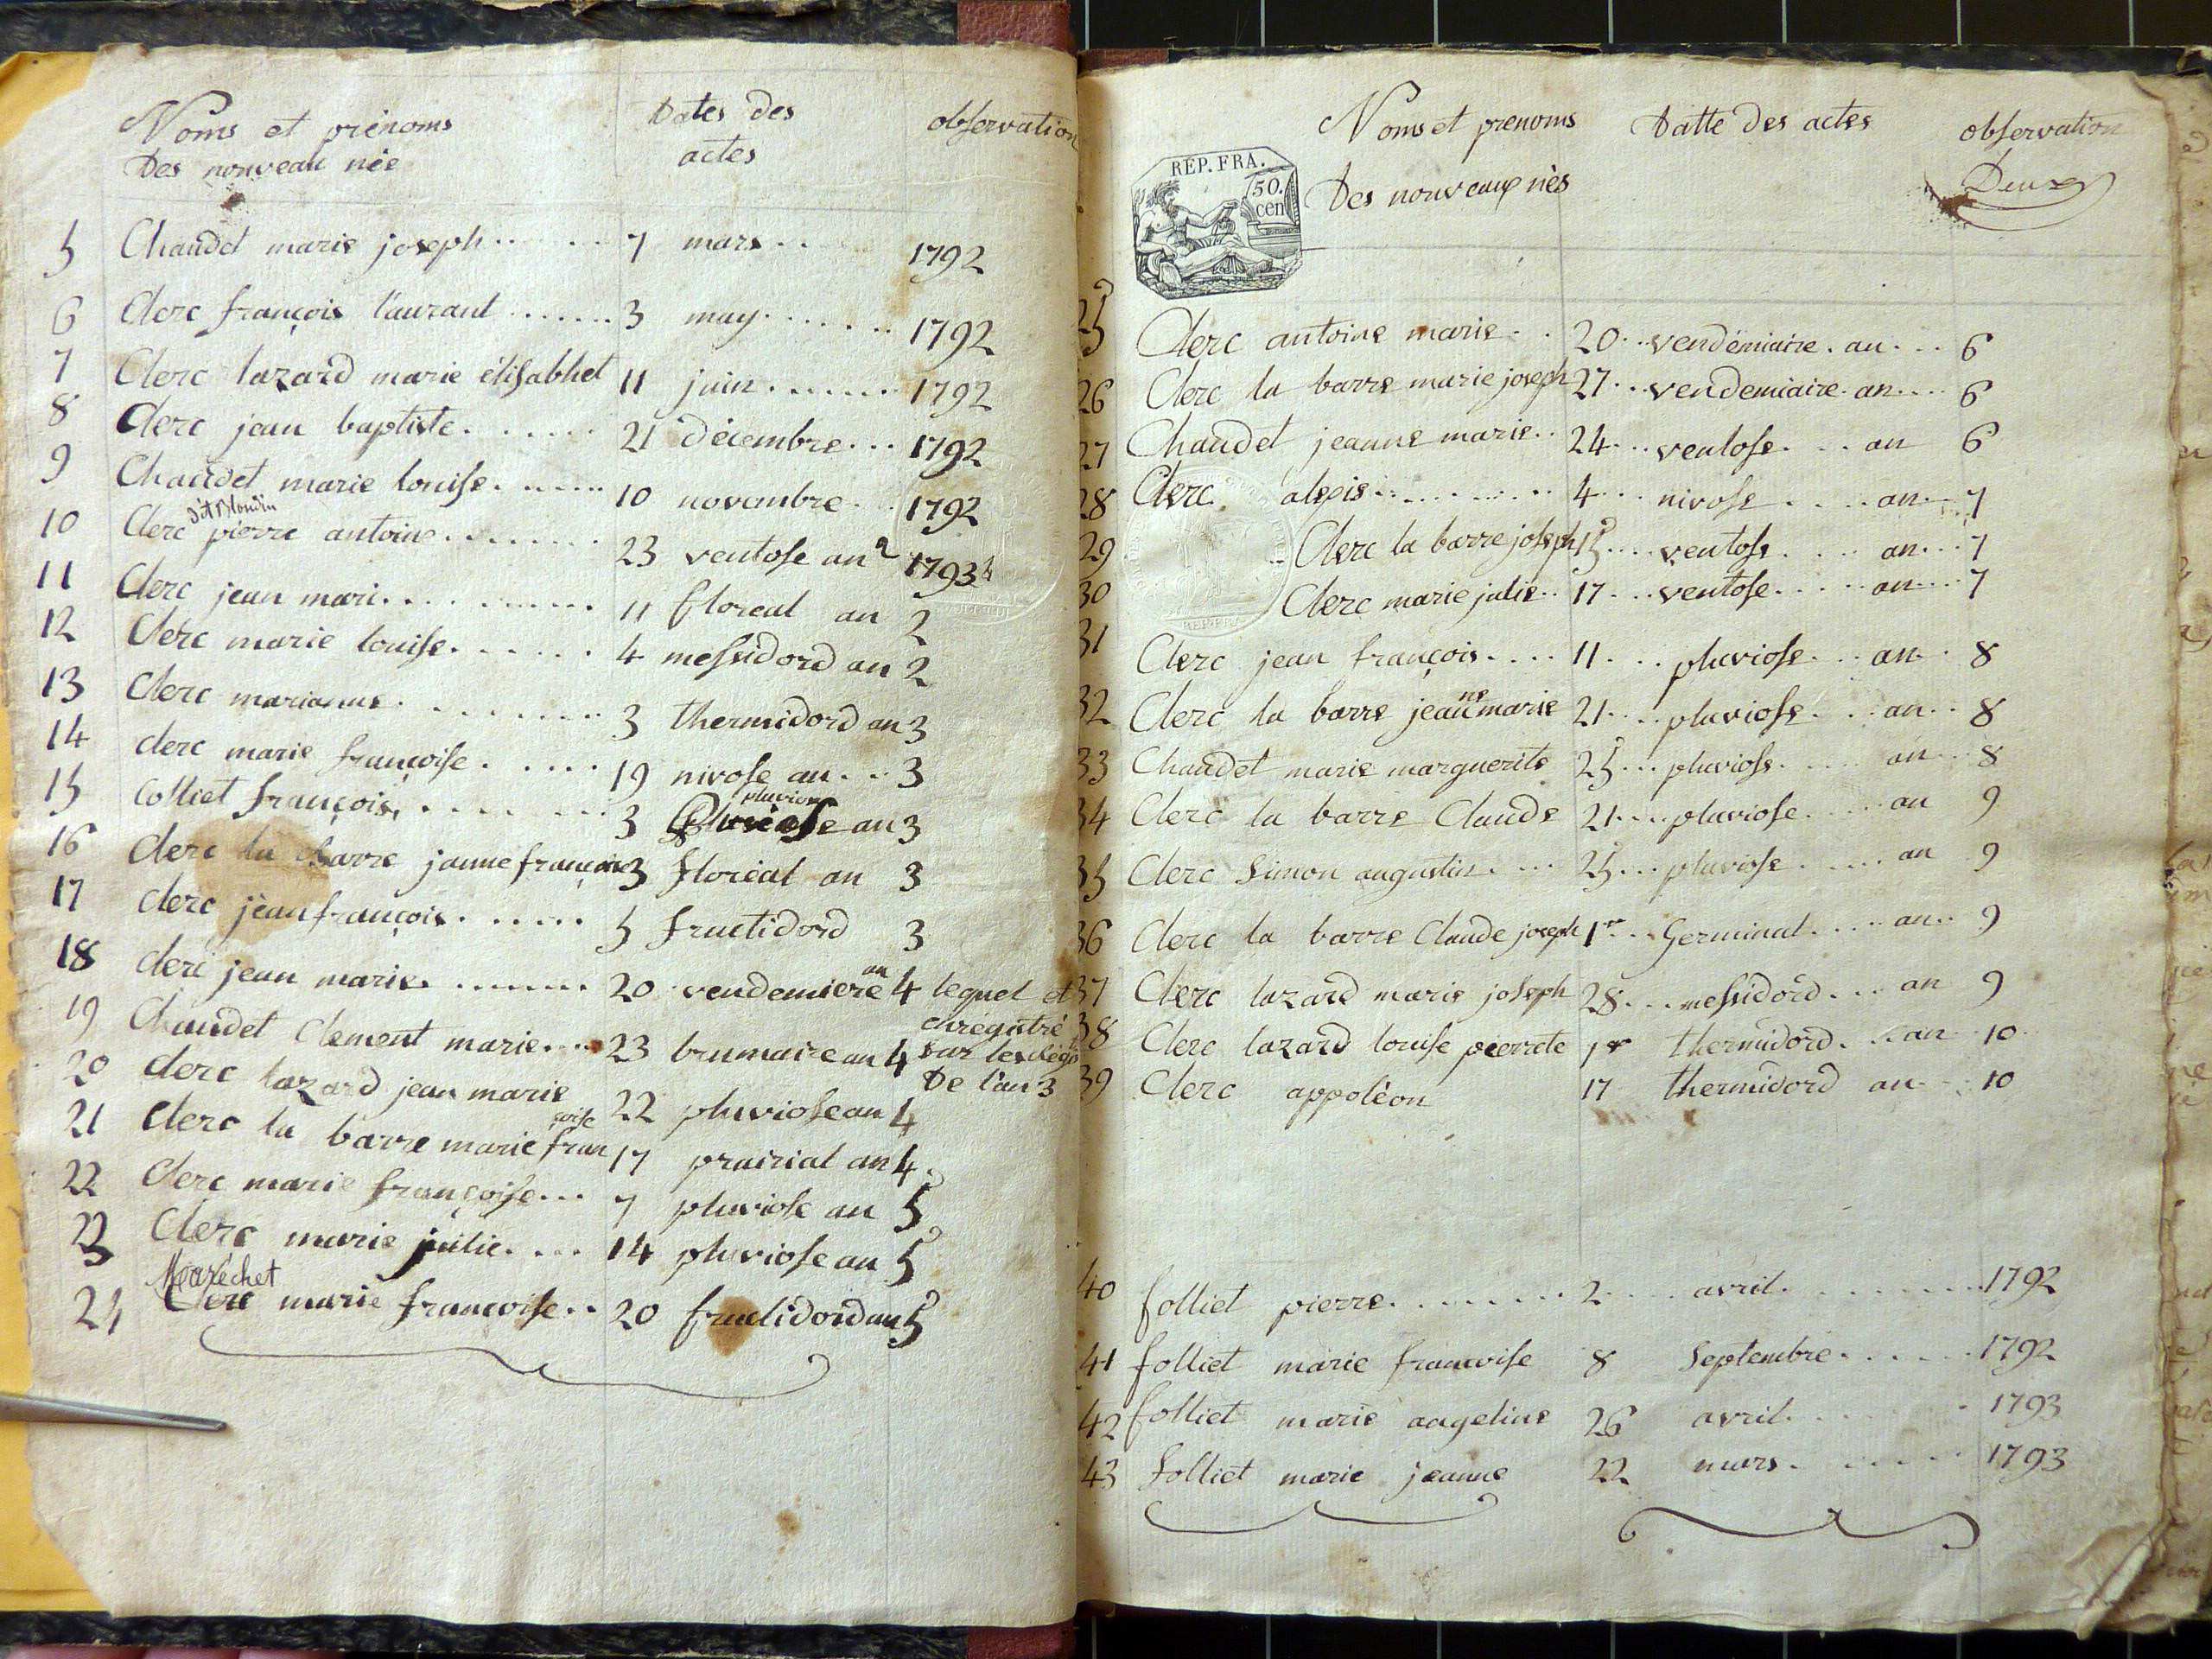 Noms et prénoms
Des nouveau nés
Dates des
actes
observation
5 Chaudet marie joseph 7 mars 1792
6 Clerc françois l'aurant 3 may 1792
7 Clerc lazard marie élisabhet 11 juin 1792
8 Clerc jean baptiste 21 décembre 1792
9 Chaudet marie louise 10 novembre 1792
dit Blondin
10 Clerc pierre antoine 23 ventose an 2 1793
11 Clerc jean mari 11 floreal an 2
12 Clerc marie louise 4 messidord an 2
13 Clerc marianne 3 thermidord an 3
14 clerc marie françoise 19 nivose an 3
pluviose
15 Colliet françois 3 an 3
16 Clerc la barre janne françoise 3 floréal an 3
17 clerc jèan françois 5 fructidord 3
18 clerc jean marie 20 vendemiere an 4 lequel et
enrégistré
19 Chaudet Clement marie 23 brumaire an 4 sur les régis
De l'an 3
20 Clerc lazard jean marie 22 pluviose an 4
21 Clerc la barre marie françoise 17 prairial an 4
22 Clerc marie françoise 7 pluviose an 5
23 Clerc marie julie 14 pluviose an 5
Marechet
24 Clerc marie francoise 20 fructidord an 5
REP. FRA.
50.
cen
Noms et prenoms
Des nouveaux nés
Datte des actes
observation
Deux
25 Clerc antoine marie 20 vendémiaire an 6
26 Clerc la barre marie joseph 27 vendemiaire an 6
27 Chaudet jeanne marie 24 ventose an 6
28 Clerc alexis 4 nivose an 7
29 Clerc la barre joseph 15 ventose an 7
30 Clerc marie julie 17 ventose an 7
31 Clerc jean françois 11 pluviose an 8
32 Clerc la barre jeanne marie 21 pluviose an 8
33 Chaudet marie marguerite 25 pluviose an 8
34 Clerc la barre Claude 21 pluviose an 9
35 Clerc Simon augustin 25 pluviose an 9
36 Clerc la barre Claude joseph 1er Germinal an 9
37 Clerc lazard marie joseph 28 messidord an 9
38 Clerc lazard louise pierrete 1er thermidord an 10
39 Clerc appoléon 17 thermidord an 10
40 folliet pierre 2 avril 1792
41 folliet marie francoise 8 Septembre 1792
42 folliet marie angeline 26 avril 1793
43 folliet marie jeanne 22 mars 1793